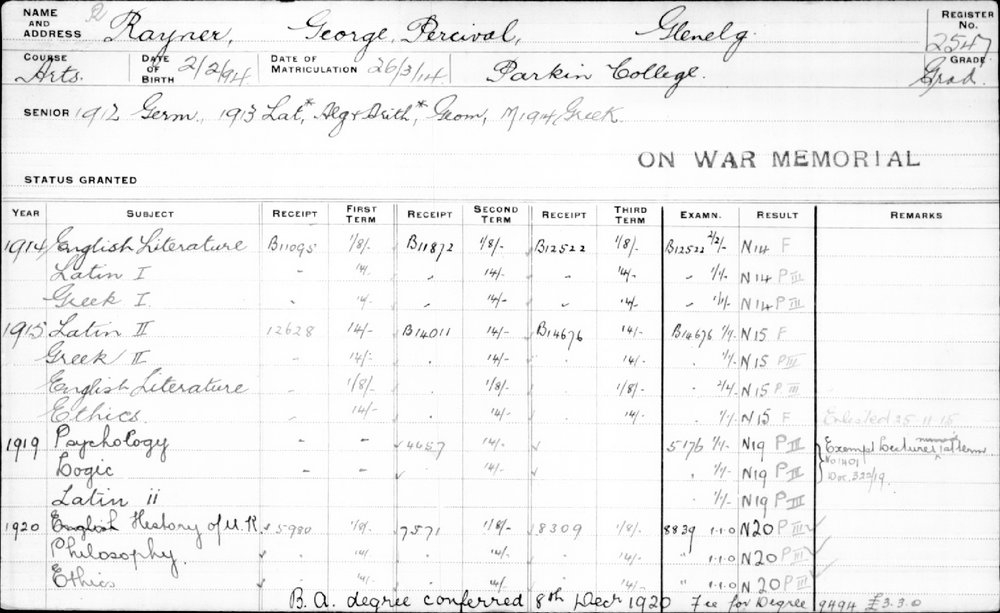 NAME AND ADDRESS Rayner, George Percival, Glenelg. REGISTER No. 2547
COURSE Arts. DATE OF BIRTH 2/2/94 DATE OF MATRICULATION 26/3/14 Parkin College. GRADE Grad.
SENIOR 1912 Germ., 1913 Lat,* Alg & Arith,* Geom, M1914 Greek
ON WAR MEMORIAL
STATUS GRANTED
YEAR SUBJECT RECEIPT FIRST TERM RECEIPT SECOND TERM RECEIPT THIRD TERM EXAMN. RESULT REMARKS
1914 English Literature B11095 1/8/- B11872 1/8/- B12522 1/8/- B12522 2/2/- N14 F
Latin I " 14/- " 14/- " 14/- " 1/1/- N14 P III
Greek I " 14/- " 14/- " 14/- " 1/1/- N14 P III
1915 Latin II 12628 14/- B14011 14/- B14676 14/- B14676 1/1/- N15 F
Greek II " 14/- " 14/- " 14/- " 1/1/- N15 P III
English Literature " 1/8/- " 1/8/- " 1/8/- " 2/2/- N15 P III
Ethics " 14/- " 14/- " 14/- " 1/1/- N15 F Enlisted 25.11.15
1919 Psychology - - 4657 14/- 5176 1/1/- N19 P II Exempt Lectures 1st term
Logic - - 14/- " 1/1/- N19 P II No 1401
Latin ii " 1/1/- N19 P III Doc. 322/19.
1920 English History of U.K. 5980 1/8/- 7571 1/8/- 8309 1/8/- 8839 1.1.0 N20 P III
Philosophy " 14/- " 14/- " 14/- " 1.1.0 N20 P III
Ethics " 14/- " 14/- " 14/- " 1.1.0 N20 P III
B.A. degree conferred 8th Decr 1920 Fee for Degree 9494 £3.3.0